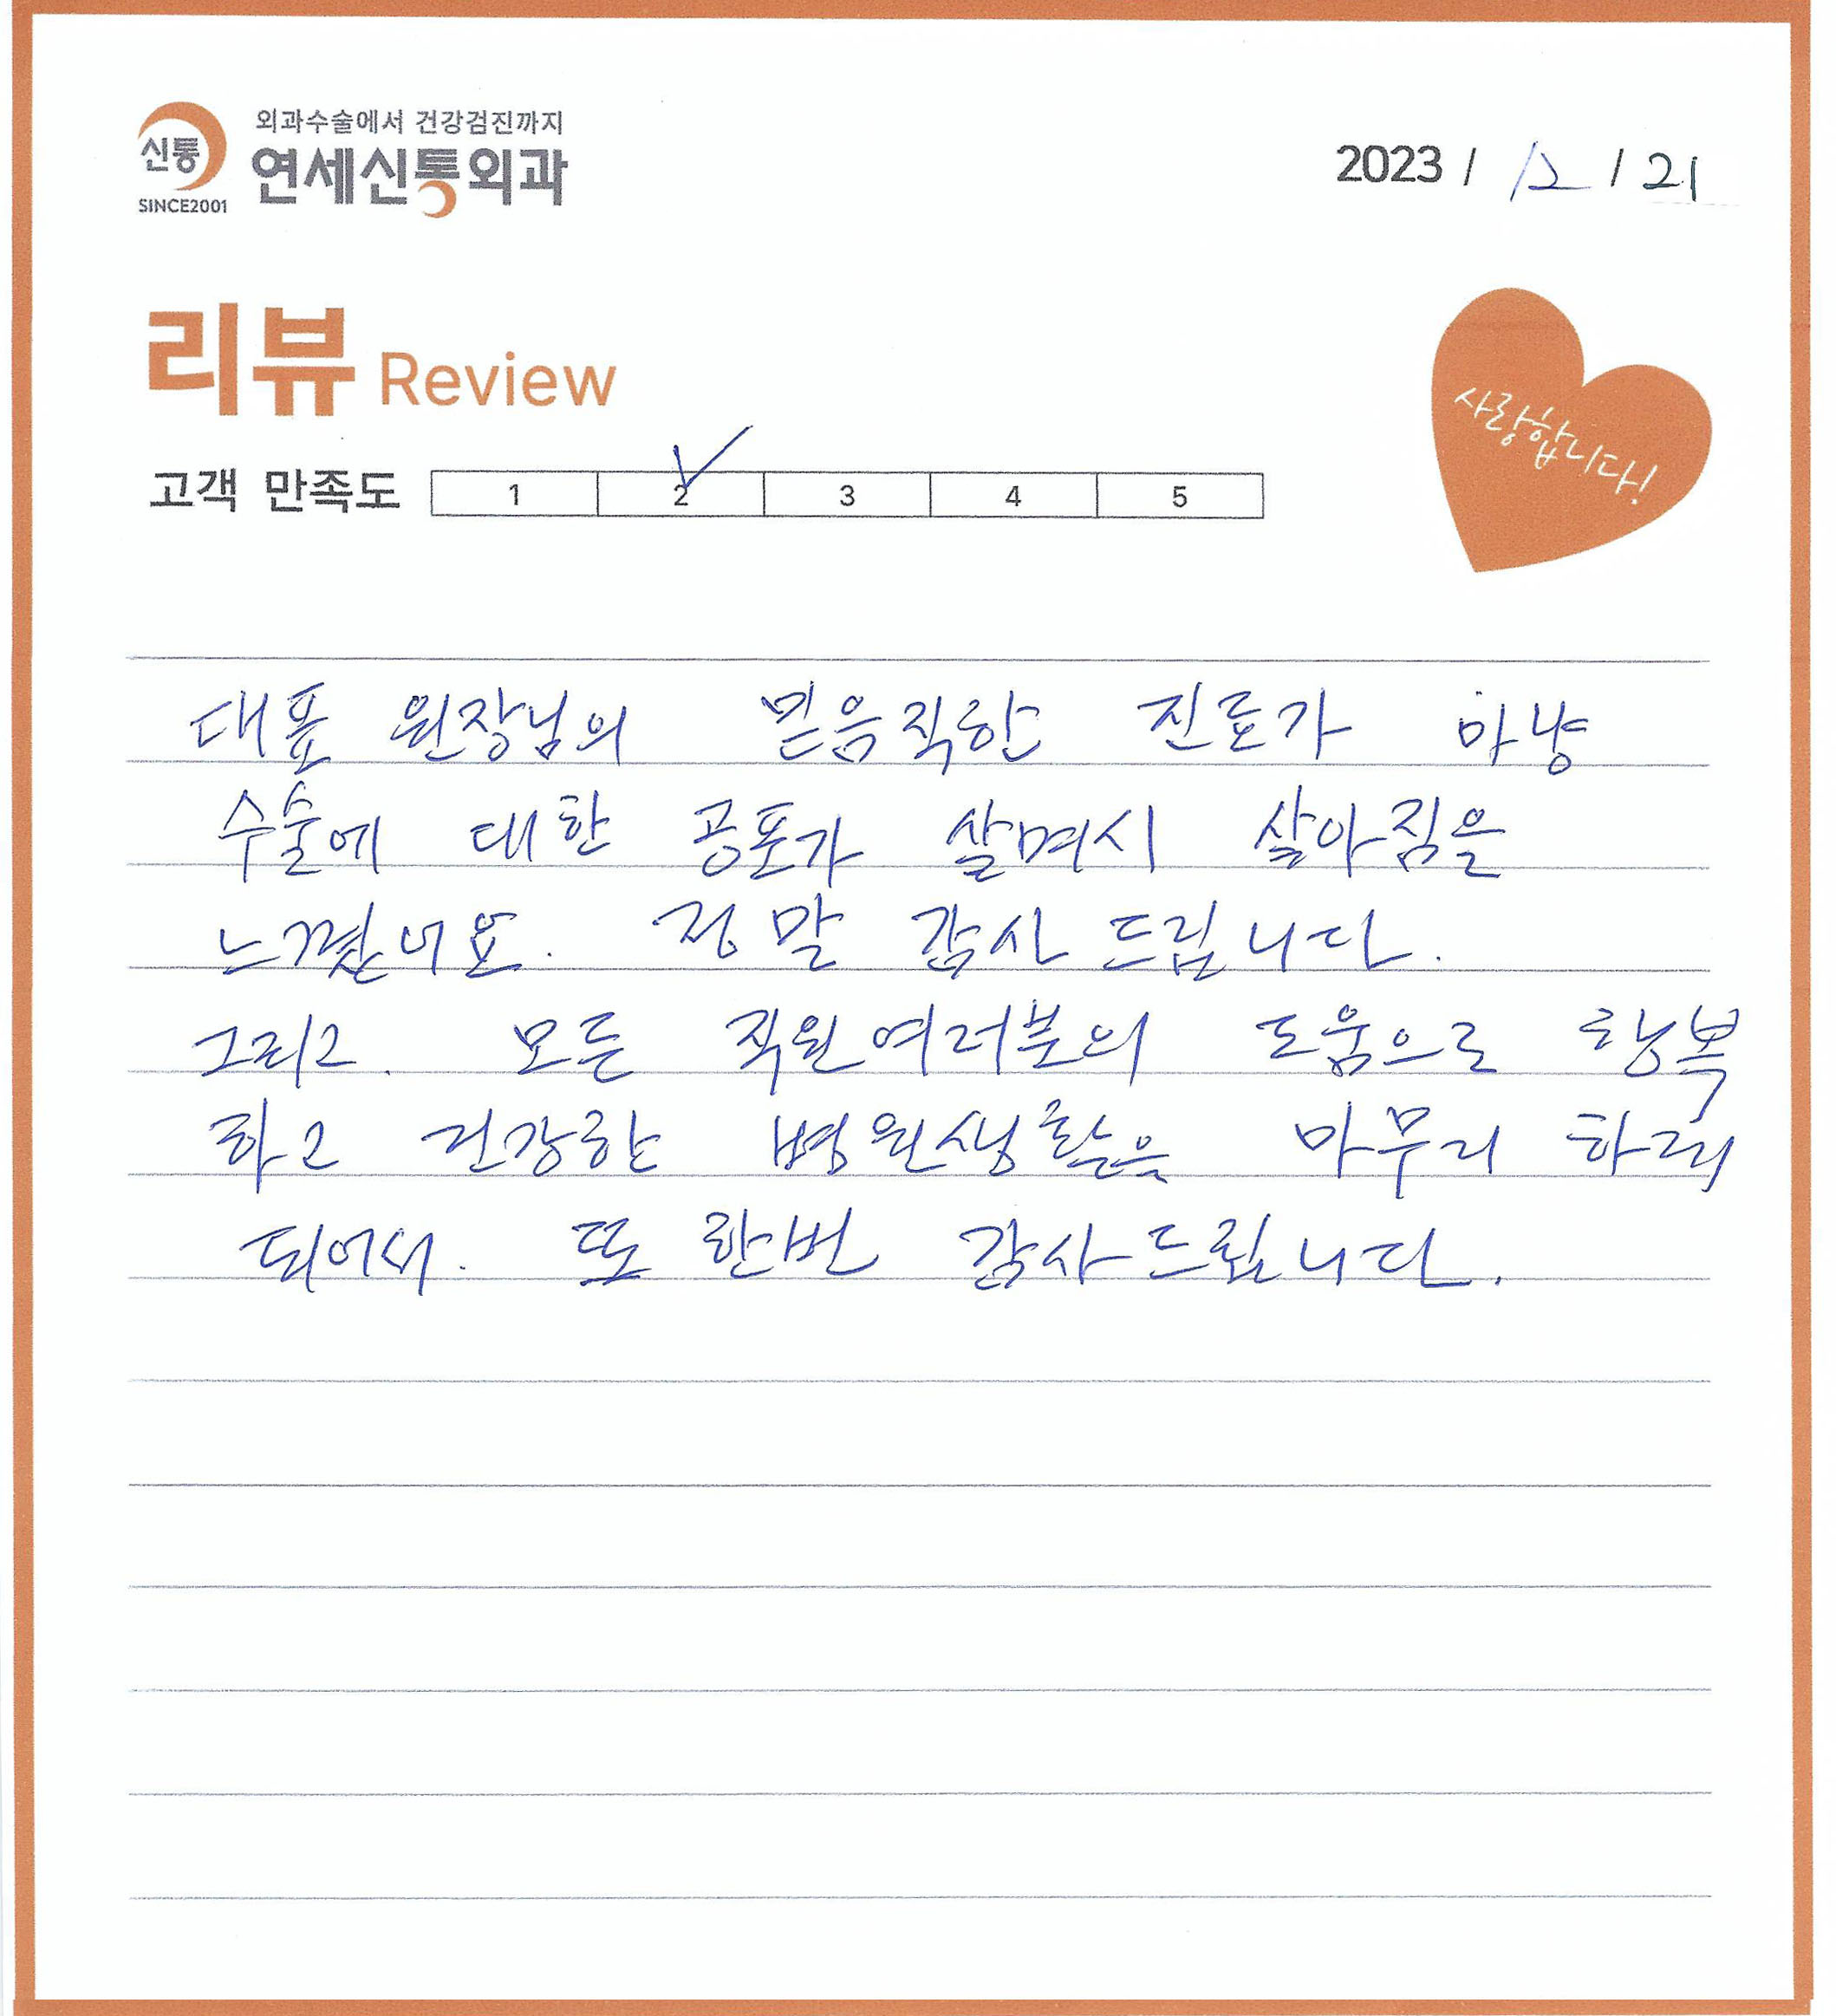 외과수술에서 건강검진까지
신통
연세신통외과
SINCE2001
2023 / 12 / 21
리뷰 Review
사랑합니다!
고객 만족도 1 2 3 4 5
대표 원장님의 믿음직한 진료가 마냥
수술에 대한 공포가 살며시 삶아짐을
느꼈네요. 정말 감사드립니다.
그리고. 모든 직원여러분의 도움으로 행복
하고 건강한 병원생활을 마무리 하게
되어서. 또 한번 감사드립니다.